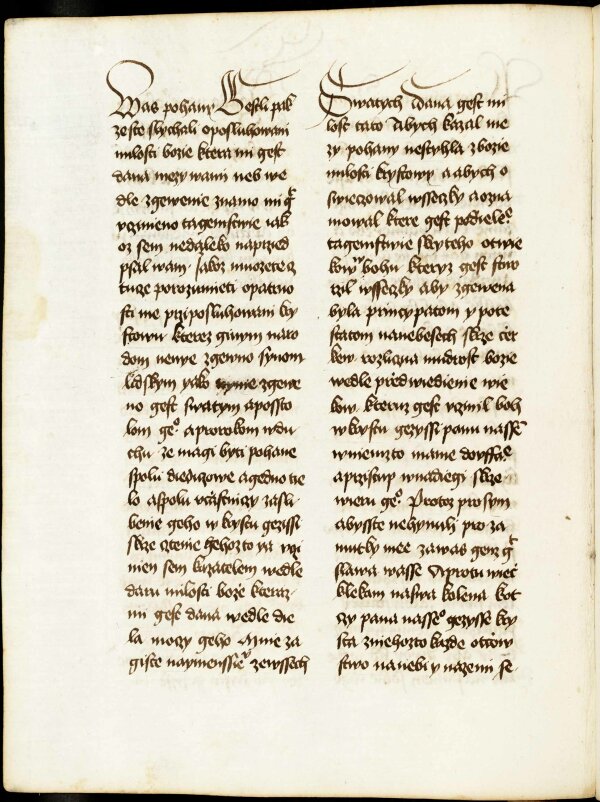 Was pohany Gestli pak
ze ste slychali oposluhowani
milosti bozie ktera mi gest
dana mezy wami neb we
dle zgewenie znamo mi g
vczinieno tagemstwie iak
oz sem nedaleko naprzed
psal wam jakoz muozete
tuze porozumieti opatrno
sti me przi posluhowani kry
stowu kterez ginym naro
dom nenye zgewno synom
lidskym yako nynie zgewe
no gest swatym apossto
lom geo a prorokom w du
chu ze magi byti pohane
spolu diedicowe a gedno tie
lo a spolu vczastniczy zasli
benie geho w krystu gezissi
skrze cztenie hehozto ya vczi
nien sem kazatelem wedle
daru milosti bozie kteraz
mi gest dana wedle die
la moczy geho Mnie za
giste naymenssieu ze wssech
Swatych dana gest mi
lost tato Abych kazal me
zy pohany nestyhla zbozie
milosti krystowy a abych o
swieczowal wsseczky a ozna
mowal ktere gest podieleo
tagemstwie skryteho ot wie
kow w bohu kteryz gest stwo
rzil wsseczky aby zgewena
byla princypatom y pote
statom na nebesech skrze cier
kew rozlicna mudrost bozie
wedle przedwiedienie wie
kow kteruz gest vczinil boh
w krystu gezyssi panu nasse
w niemzto mame
a przistup w nadiegi skrze
wieru geo Protoz prosym
abysste nehynuli pro za
mutky mee za was genz g
slawa wasse A protu wiec
klekam na swa kolena k ot
czy pana nasseo gezysse kry
sta z niehozto kazde otczow
stwo na nebi y na zemi se